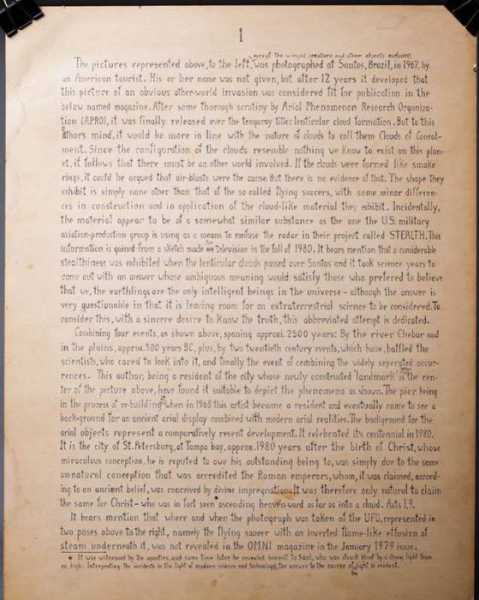 1
except the winged creature and other objects
The pictures represented above, to the left, was photographed at Santos, Brazil, in 1967, by
an American tourist. His or her name was not given, but after 12 years it developed that
this picture of an obvious other-world invasion was considered fit for publication in the
below named magazine. After some thorough scrutiny by Arial Phenomenon Research Organiza-
tion (APRO), it was finally released over the temporary title: lenticular cloud formation. But to this
authors mind, it would be more in line with the nature of clouds to call them Clouds of Conceal-
ment. Since the configuration of the clouds resemble nothing we know to exist on this plan-
et, it follows that there must be an other world involved. If the clouds were formed like smoke
rings, it could be argued that air-blasts were the cause. But there is no evidence of that. The shape they
exhibit is simply none other than that of the so-called flying saucers, with some minor differen-
ces in construction and in application of the cloud-like material they exhibit. Incidentally,
the material appear to be of a somewhat similar substance as the one the U.S. military
aviation-production group is using as a means to confuse the radar in their project called STEALTH. This
information is gained from a sketch made on television in the fall of 1980. It bears mention that a considerable
stealthiness was exhibited when the lenticular clouds passed over Santos and it took science years to
come out with an answer whose ambiguous meaning would satisfy those who preferred to believe
that we, the earthlings are the only intelligent beings in the universe - although the answer is
very questionable in that it is leaving room for an extraterrestrial science to be considered. To
consider this, with a sincere desire to know the truth, this abbreviated attempt is dedicated.
Combining four events, as shown above, spacing approx. 2500 years: By the river Chebar and
in the plains, approx. 500 years BC, plus, by two twentieth century events, which have, baffled the
scientists, who cared to look into it, and finally the event of combining the widely seperated occur-
rences. This author, being a resident of the city whose newly constructed landmark is the cen-
ter of the picture above, have found it suitable to depict the phenomena as shown. The pier being
in the process of re-building when in 1968 this artist became a resident and eventually came to see a
background for an ancient arial display combined with modern arial realities. The background for the
arial objects represent a comparatively resent development. It celebrated its centennial in 1980.
It is the city of St. Petersburg, at Tampa bay, approx. 1980 years after the birth of Christ, whose
miraculous conception, he is reputed to owe his outstanding being to, was simply due to the same
unnatural conception that was accredited the Roman emperors, whom, it was claimed, accord-
ing to an ancient belief, was conceived by divine impregnation. It was therefore only natural to claim
the same for Christ - who was in fact seen ascending heavenward as far as into a cloud. Acts 1,9.
It bears mention that where and when the photograph was taken of the UFO, represented in
two poses above to the right, namely the flying saucer with an inverted flame-like effusion of
steam underneath it, was not revealed in the OMNI magazine in the January 1979 issue.
* It was witnessed by the apostles, and some time later he revealed himself to Saul, who was struck blind by a given light from
on high. Interpreting the incidents in the light of modern science and technology, the answer to the source of light is evident.